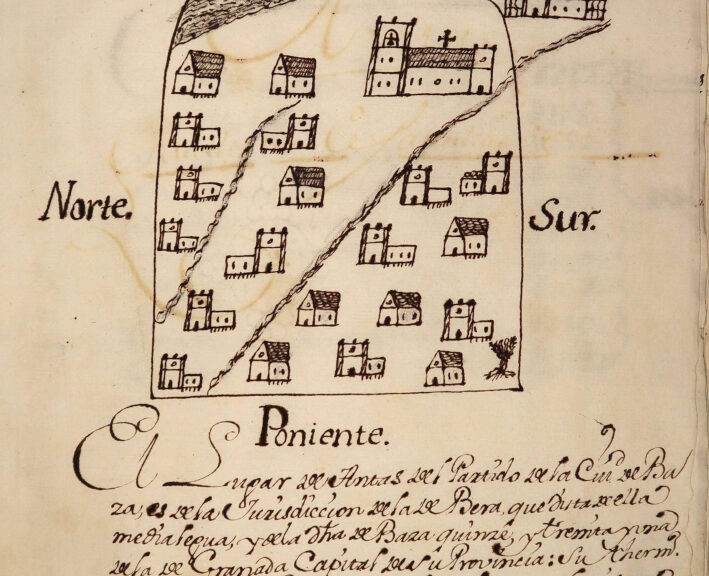 Norte.
Sur.
Poniente.
El Lugar de Antas del Partido de la Ciud. de Ba
za, es de la Jurisdiccion de la de Bera, que dista de ella
media legua, y de la dha de Baza quinze, y treinta y una
de la de Granada Capital de su Provincia: Su Therm.